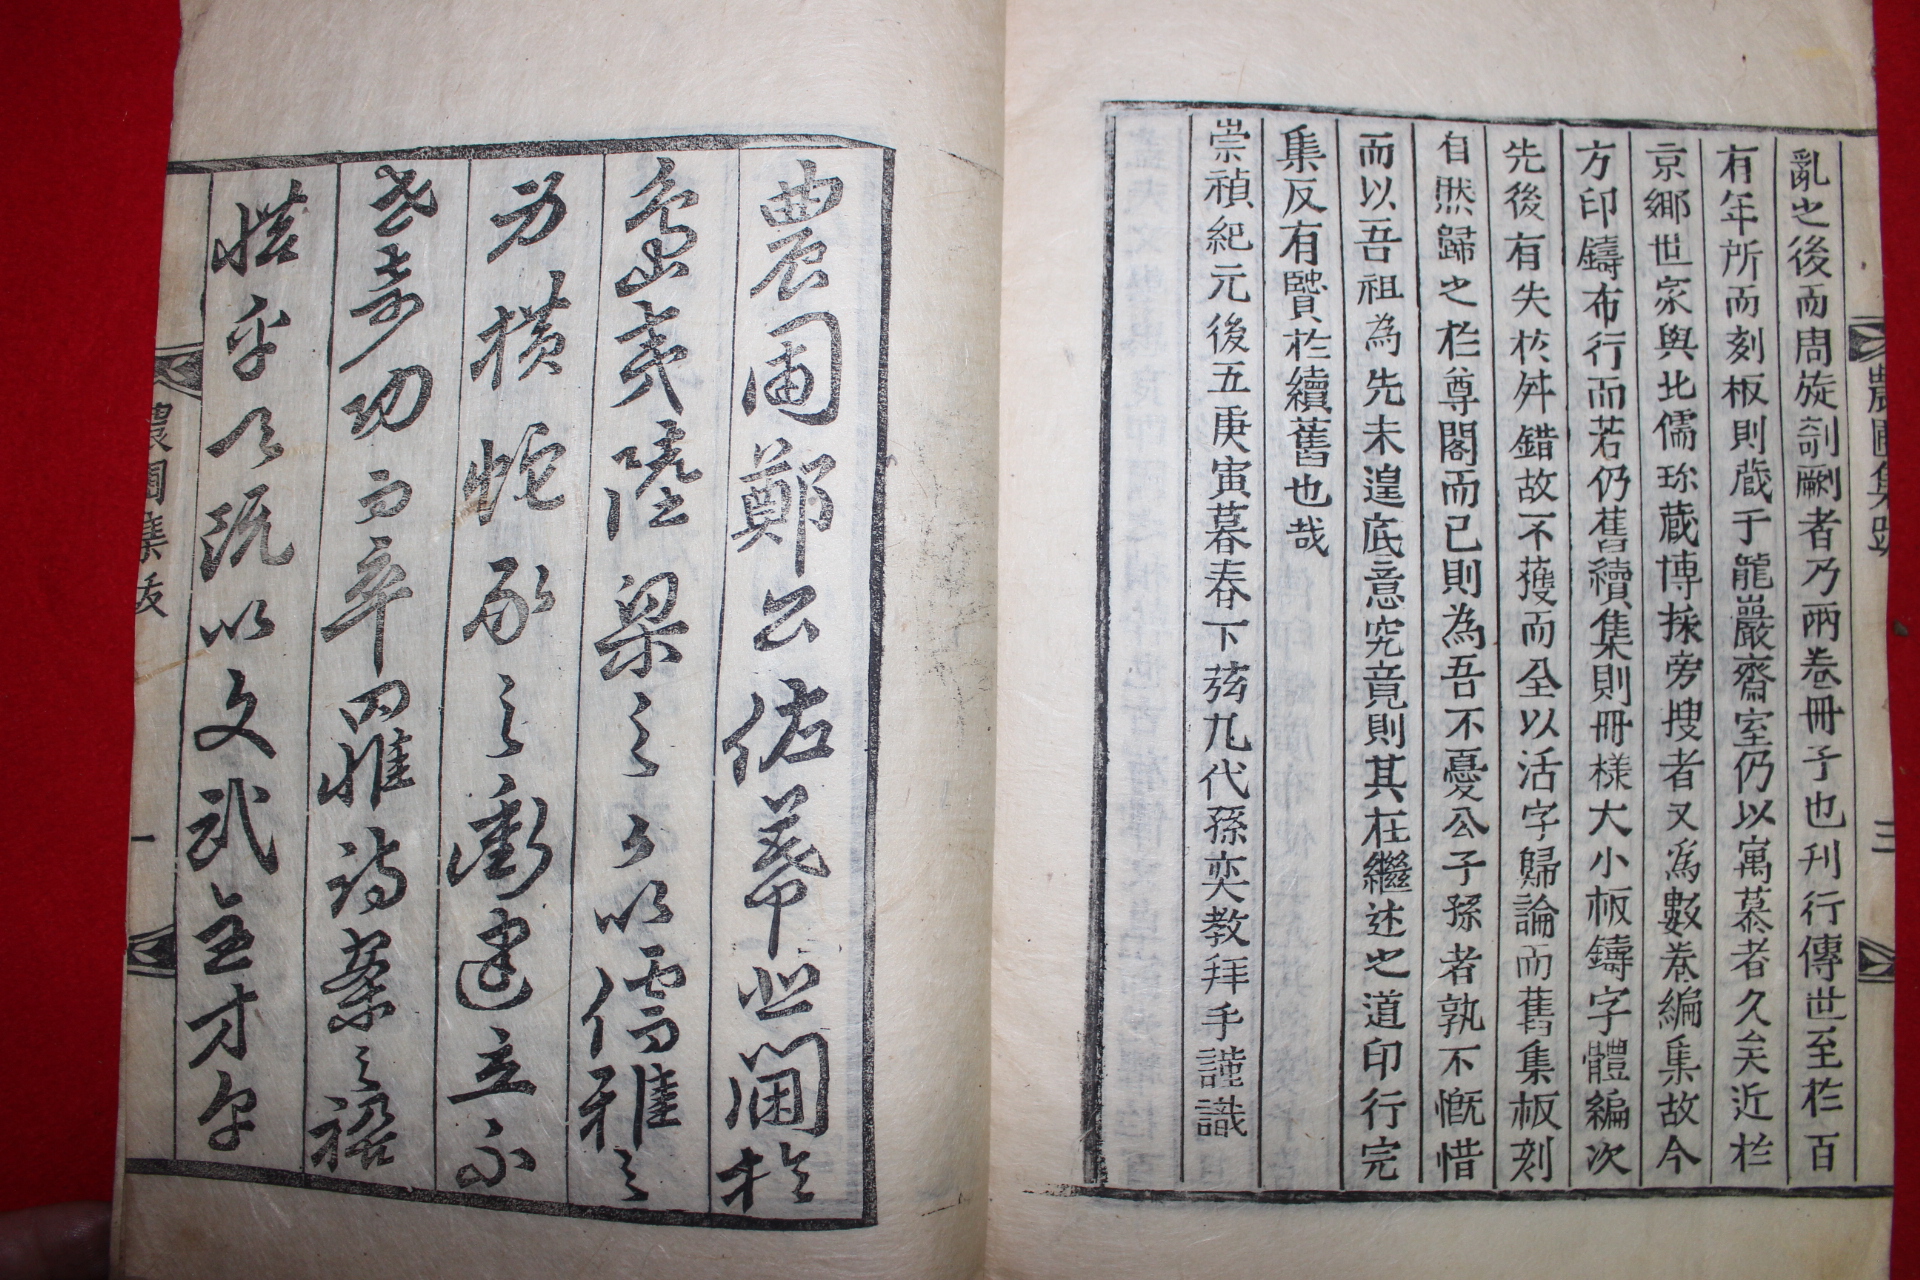 亂之後而周旋剞劂者乃兩卷冊子也刊行傳世至於百
有年所而刻板則蔵于龍巖齋室仍以寓慕者久矣近於
京鄉世家與北儒珎蔵博採旁搜者又為數卷編集故今
方印鑄布行而若仍舊續集則冊様大小板鑄字體編次
先後有失於舛錯故不獲而全以活字歸論而舊集板刻
自然歸之於尊閣而已則為吾不憂公子孫者孰不慨惜
而以吾祖為先未遑底意究竟則其在繼述之道印行完
集反有賢於續舊也哉
崇禎紀元後五庚寅暮春下弦九代孫奕教拜手謹識
農圃集跋
三
農圃鄭公佐幕北閫於
島夷陸梁之
以儒雅之
力橫
豕之衝建立不
世奇功而卒罹詩案之禍
惜乎公旣以文武全才
農圃集跋
一